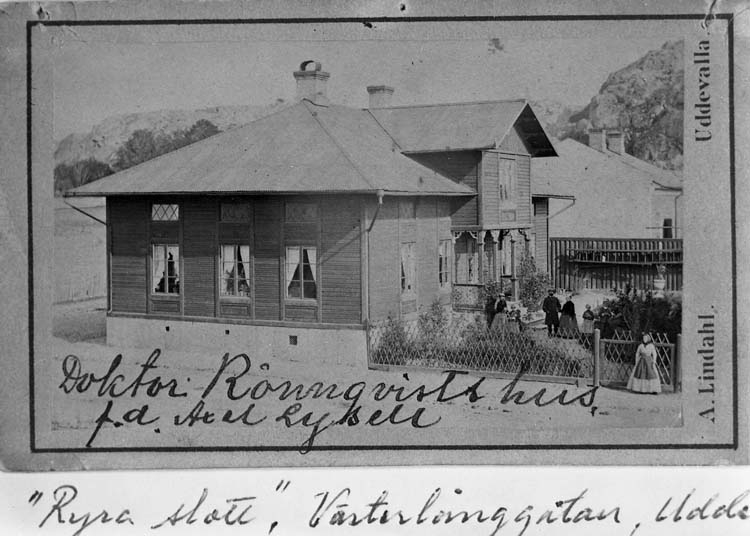 Uddevalla
A. Lindahl.
Doktor Rönnqvists hus,
f.d. Axel Lybeck
"Ryra slott", Västerlånggatan, Udde